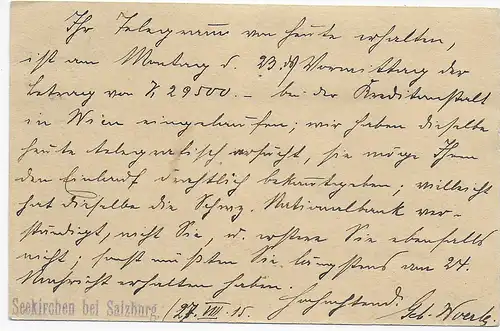 Ihr Telegramm von heute erhalten,
ist am Montag d. 23. ds Vormittag der
Betrag von K 29500.– bei der Kreditanstalt
in Wien eingelaufen; wir haben dieselbe
heute telegrafisch ersucht, sie möge Ihnen
den Einlauf drahtlich bekanntgeben; vielleicht
hat dieselbe die Schwz. Nationalbank ver-
ständigt, nicht Sie, u. erstere Sie ebenfalls
nicht; sonst müßten Sie längstens am 24.
Nachricht erhalten haben.
Hochachtend
Seekirchen bei Salzburg, /27. VIII. 15. Geb. Woerle